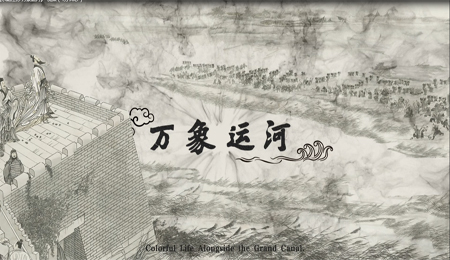 万象运河
Colorful Life Alongside the Grand Canal